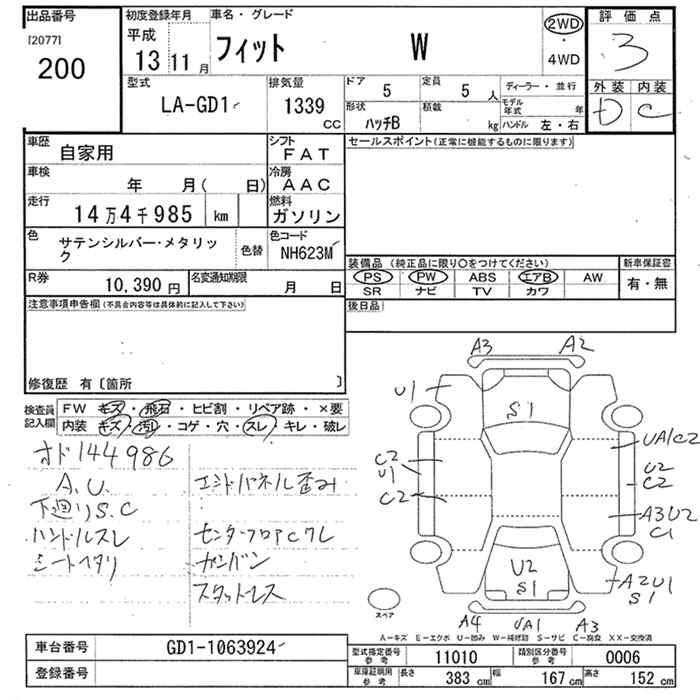 出品番号
[2077]
200
初度登録年月
平成
13 11 月
車名・グレード
フィット W
2WD
・
4WD
評価点
3
外装 内装
D C
型式
LA-GD1
排気量
1339
CC
ドア
5
定員
5 人
形状
ハッチB
積載
kg
ディーラー・並行
モデル年式 年
ハンドル 左・右
車歴
自家用
シフト
FAT
車検
年 月( 日)
冷房
AAC
走行
14万4千985 km
燃料
ガソリン
色
サテンシルバー・メタリック
色替
色コード
NH623M
R券
10,390 円
名変通知期限
月 日
セールスポイント(正常に機能するものに限ります)
装備品 (純正品に限り○をつけてください)
PS PW ABS エアB AW
SR ナビ TV カワ
新車保証書
有・無
後日品
注意事項申告欄(不具合内容等は具体的に記入して下さい)
修復歴 有〔箇所 〕
検査員記入欄
FW キズ・飛石・ヒビ割・リペア跡・×要
内装 キズ・汚レ・コゲ・穴・スレ・キレ・破レ
オド144986
A.U.
下廻りS.C
ハンドルスレ
シートヘタリ
エンドパネル歪み
センターフロアCワレ
カンバン
スタットレス
A3 A2
U1
S1
UA1C2
C2
U1
U2
C2
C2
A3U2
C1
U2
S1
A2U1
S1
スペア
A4 UA1 A3
A-キズ E-エクボ U-凹み W-補修跡 S-サビ C-腐食 XX-交換済
車台番号
GD1-1063924
登録番号
型式指定番号
参考
11010
類別区分番号
参考
0006
車庫証明用
参考
長さ
383 cm
幅
167 cm
高さ
152 cm